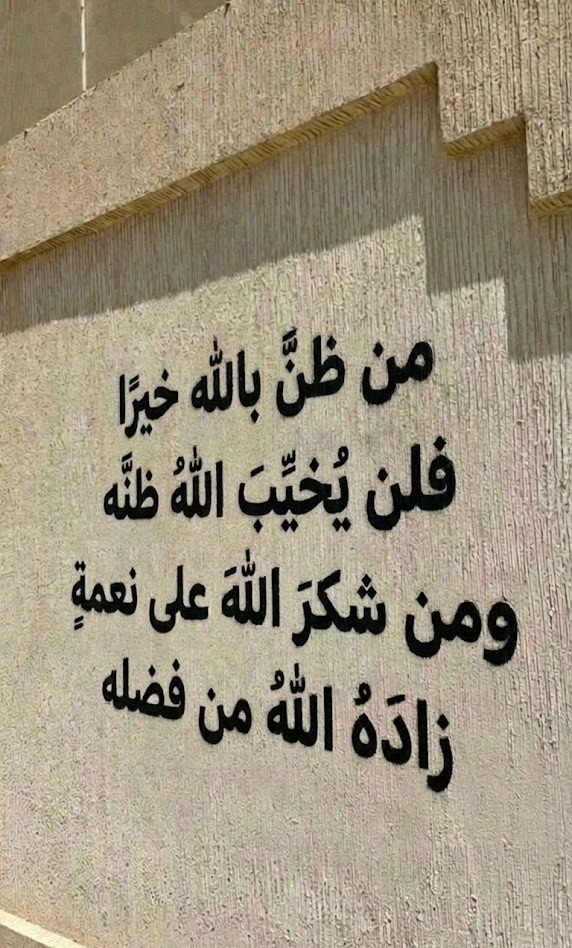 من ظنَّ بالله خيرًا
فلن يُخيِّبَ اللهُ ظنَّه
ومن شكرَ اللهَ على نعمةٍ
زادَهُ اللهُ من فضله